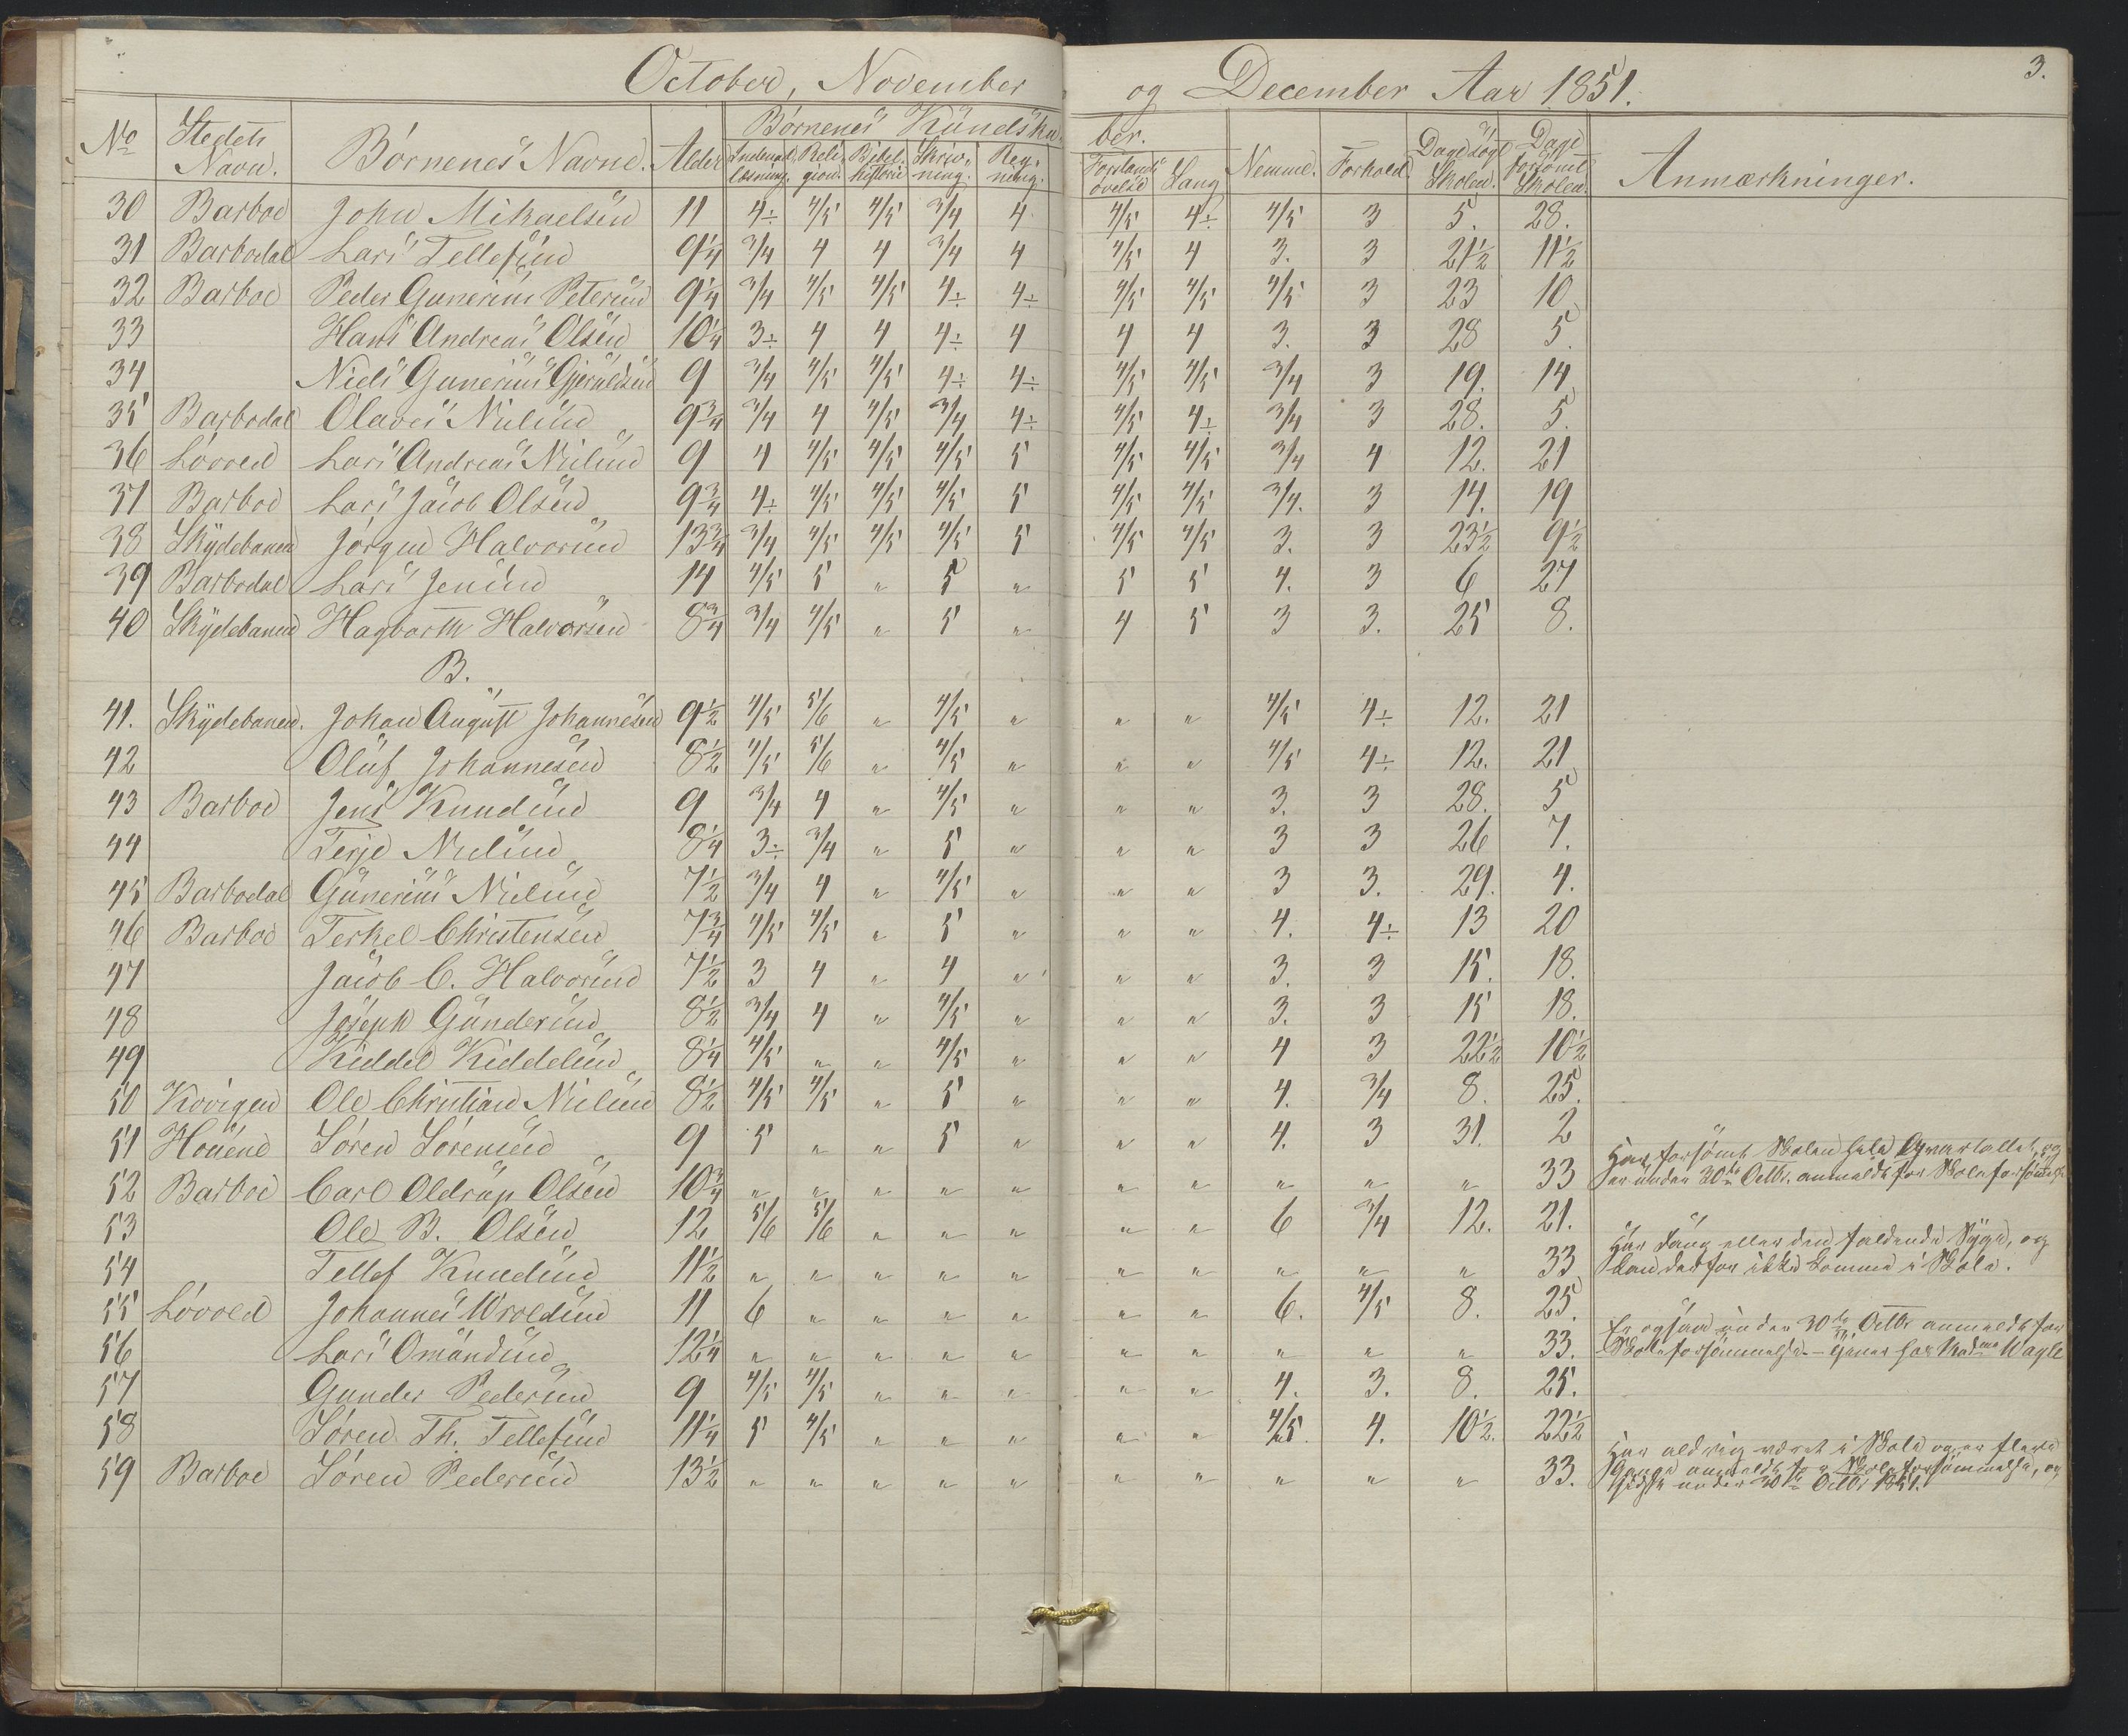 October, November og December Aar 1851. 3.
No Stedets Navn. Børnenes Navne. Alder Børnenes Kundskaber. Nemme. Forhold Dage søgt Skolen. Dage forsømt Skolen. Anmærkninger.
Indenadlæsning. Religion. Bibelhistorie Skrivning. Regning. Forstandsøvelse Sang
30 Barboe John Mikaelsen 11 4÷ 4/5 4/5 3/4 4 4/5 4÷ 4/5 3 5. 28.
31 Barbodal Lars Tellefsen 9 1/4 3/4 4 4 3/4 4 4/5 4 3. 3 21 1/2 11 1/2
32 Barboe Peder Gunerius Petersen 9 1/4 3/4 4/5 4/5 4÷ 4÷ 4/5 4/5 4/5 3 23 10
33 Hans Andreas Olsen 10 1/4 3÷ 4 4 4÷ 4 4 4 3. 3 28 5.
34 Niels Gunerius Gjeruldsen 9 3/4 4/5 4/5 4÷ 4÷ 4/5 4/5 3/4 3 19. 14
35 Barbodal Olaves Nielsen 9 3/4 3/4 4 4/5 3/4 4÷ 4/5 4÷ 3/4 3 28. 5.
36 Løvold Lars Andreas Nielsen 9 4 4/5 4/5 4/5 5 4/5 4/5 3/4 4 12. 21
37 Barboe Lars Jacob Olsen 9 3/4 4÷ 4/5 4/5 4/5 5 4/5 4/5 3/4. 3 14. 19
38 Skydebanen Jørgen Halvorsen 13 3/4 3/4 4/5 4/5 4/5 5 4/5 4/5 3. 3 23 1/2 9 1/2
39 Barbodal Lars Jensen 14 4/5 5 " 5 " 5 5 4. 3 6 27
40 Skydebanen Hagbarth Halvorsen 8 3/4 3/4 4/5 " 5 " 4 5 3 3. 25 8.
B.
41. Skydebanen. Johan August Johannesen 9 1/2 4/5 5/6 " 4/5 " " " 4/5 4÷ 12. 21
42 Oluf Johannesen 8 1/2 4/5 5/6 " 4/5 " " " 4/5 4÷ 12. 21
43 Barboe Jens Knudsen 9 3/4 4 " 4/5 " " " 3. 3 28. 5
44 Terje Nielsen 8 1/4 3÷ 3/4 " 5 " " " 3 3 26 7.
45 Barbodal Gunerius Nielsen 7 1/2 3/4 4 " 4/5 " " " 3 3. 29. 4.
46 Barboe Terkel Christensen 7 3/4 4/5 4/5 " 5 " " " 4. 4÷ 13 20
47 Jacob C. Halvorsen 7 1/2 3 4 " 4 " " " 3. 3 15. 18.
48 Joseph Gundersen 8 1/2 3/4 4 " 4/5 " " " 3. 3 15 18.
49 Kiddel Kiddelsen 8 1/4 4/5 " " 4/5 " " " 4 3 22 1/2 10 1/2
50 Kovigen Ole Christian Nielsen 8 1/2 4/5 4/5 " 5 " " " 4. 3/4 8. 25.
51 Houene Søren Sørensen 9 5 " " 5 " " " 4. 3 31. 2
Har forsømt Skolen hele Qvartallet, og
52 Barboe Carl Oldrup Olsen 10 3/4 " " " " " " " " " " 33 er under 30te Octbr. anmeldt for Skoleforsømmelse
53 Ole B. Olsen 12 5/6 5/6 " " " " " 6 3/4 12. 21.
54 Tellef Knudsen 11 1/2 " " " " " " " " " " 33 eller den faldende Syge, og
kan derfor ikke komme i Skole.
55 Løvold Johannes Wroldsen 11 6 " " " " " " 6. 4/5 8. 25.
Er ogsaa under 30te Octbr anmeldt for
56 Lars Omundsen 12 1/4 " " " " " " " " " " 33. Skoleforsømmelse. – hos Wagle
57 Gunder Pedersen 9 4/5 4/5 " " " " " 4. 3. 8. 25.
58 Søren Th. Tellefsen 11 1/4 5 4/5 " " " " " 4/5. 4. 10 1/2. 22 1/2
Har aldrig været i Skole og er flere
59 Barboe Søren Pedersen 13 1/2 " " " " " " " " " " 33. Gange anmeldt for Skoleforsømmelse, og
sidst under 30te Octbr 1851.